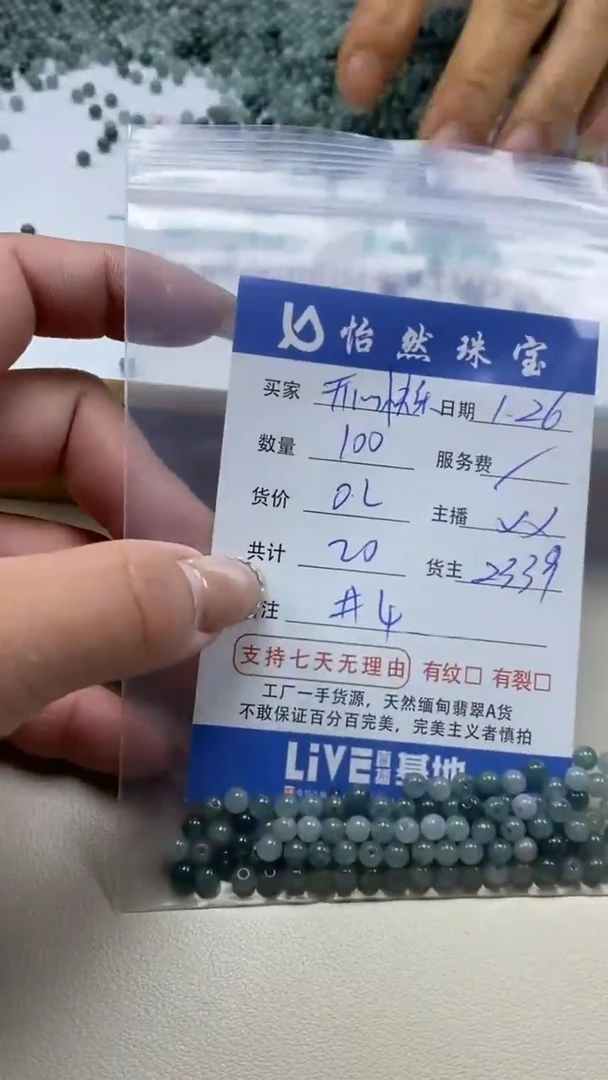 怡然珠宝
买家 开心快乐 日期 1.26
数量 100 服务费 /
货价 0.2 主播 XX
共计 20 货主 2339
注 #4
支持七天无理由 有纹□ 有裂□
工厂一手货源，天然缅甸翡翠A货
不敢保证百分百完美，完美主义者慎拍
LiVE直播基地